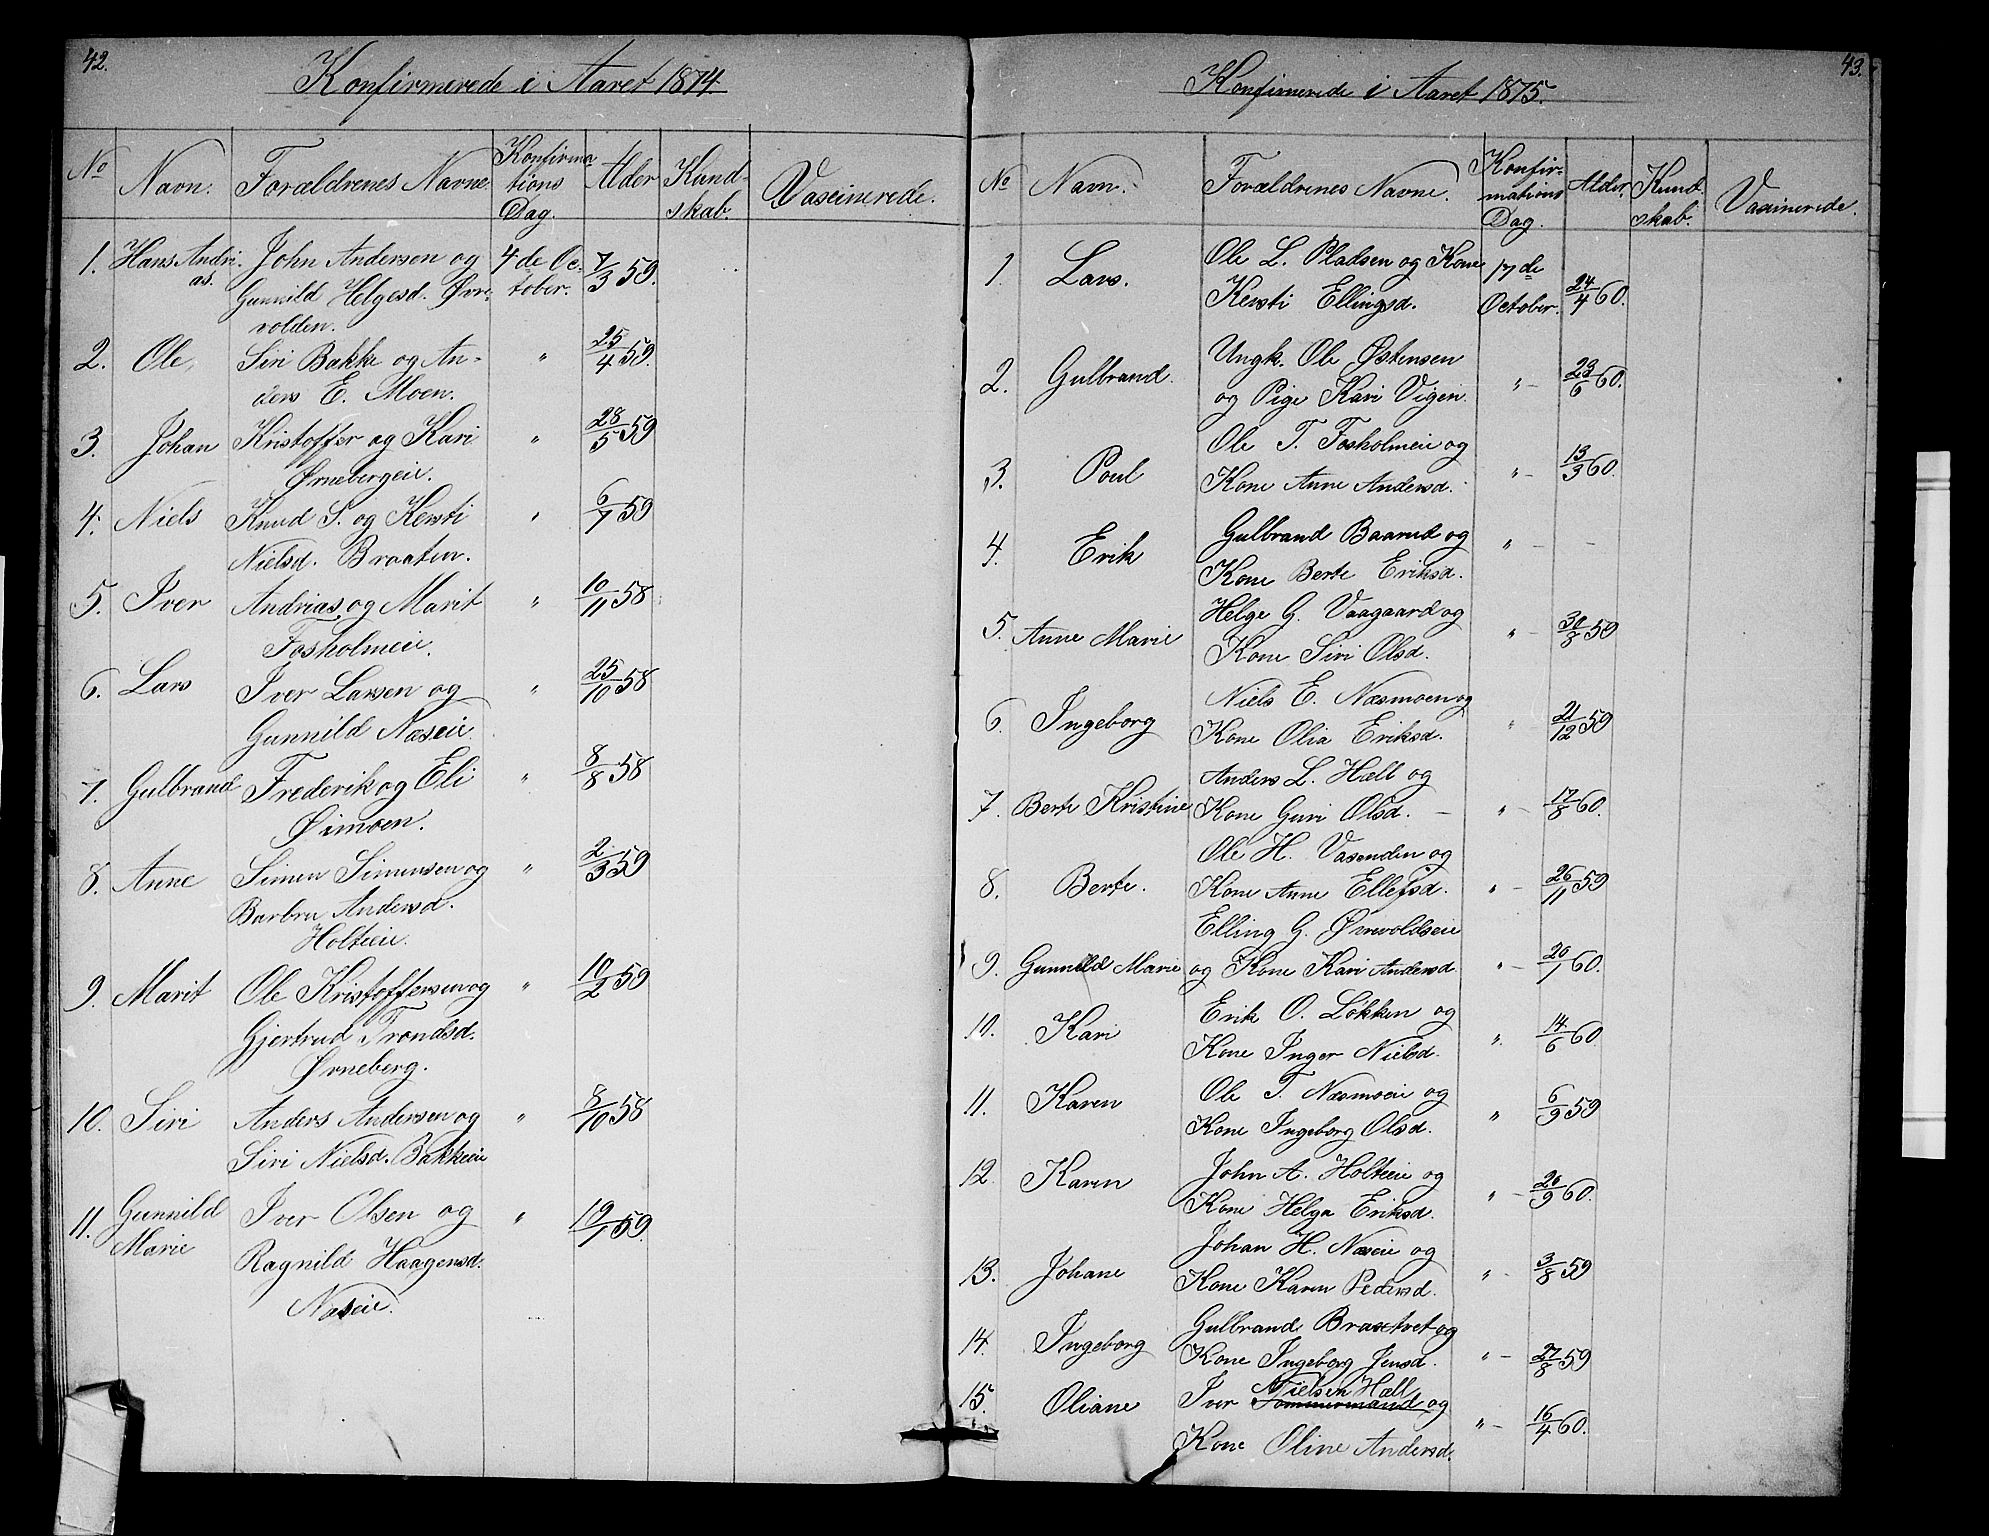 42.
Konfirmerede i Aaret 1874.
No Navn. Forældrenes Navne Konfirma tions Dag. Alder Kund- skab. Vascinerede.
1. Hans Andri- as. John Andersen og 4de Oc- 7/3 59.
Gunnild Helgesd. Øvre- tober.
volden.
2. Ole, Siri Bakke og An- " 25/4 59.
ders E. Moen.
3. Johan Kristoffer og Kari " 28/5 59
Ørnebergeie.
4. Niels Knud S. og Kersti " 6/7 59
Nielsd. Braaten.
5. Iver Andrias og Marit " 10/11 58
Fosholmeie.
6. Lars Iver Larsen og " 25/10 58
Gunnild Næseie.
7. Gulbrand Frederik og Eli " 8/8 58
Øimoen.
8. Anne Simen Simensen og " 2/3 59
Barbru Andersd.
Holteeie.
9. Marit Ole Kristoffersen og " 10/2 59
Gjertrud Trondsd.
Ørneberg.
10. Siri Anders Andersen og " 8/10 58
Siri Nielsd. Bakkeeie
11. Gunnild Iver Olsen og " 19/1 59.
Marie Ragnild Haagensd.
Næseie.
43.
Konfirmerede i Aaret 1875.
No Navn. Forældrenes Navne. Konfir- mations Dag. Alder. Kund skab. Vascinerede.
1. Lars. Ole L. Pladsen og Kone 17de
Kersti Ellingsd. October. 24/4 60.
2. Gulbrand. Ungk. Ole Østensen
og Pige Kari Vigen. " - 23/6 60.
3. Poul Ole T. Fosholmeie og
Kone Anne Andersd. " - 13/3 60.
4. Erik Gulbrand Baarud og " - -
Kone Berte Eriksd.
5. Anne Marie Helge G. Vaagaard og " - 30/8 59
Kone Siri Olsd.
6. Ingeborg Niels E. Næsmoen og
Kone Olia Eriksd. " - 21/12 59
7. Berte Kristine Anders L. Hæll og
Kone Guri Olsd. - " - 17/8 60.
8. Berte. Ole H. Vasenden og
Kone Anne Ellefsd. " - 26/11 59
9. Gunnild Marie Elling G. Øvrevoldseie
og Kone Kari Andersd. " - 20/1 60.
10. Kari Erik O. Løkken og
Kone Inger Nielsd. " 14/6 60.
11. Karen Ole T. Næsmoeie og
Kone Ingeborg Olsd. " 6/9 59
12. Karen John A. Holteeie og
Kone Helga Eriksd. " - 20/9 60.
13. Johane Johan H. Næseie og
Kone Karen Pedersd. " - 3/8 59
14. Ingeborg Gulbrand Braatvet og
Kone Ingeborg Jensd. " - 27/8 59
15. Oliane Iver Nielsen Hæll Tommermand og
Kone Oline Andersd. " - 16/4 60.